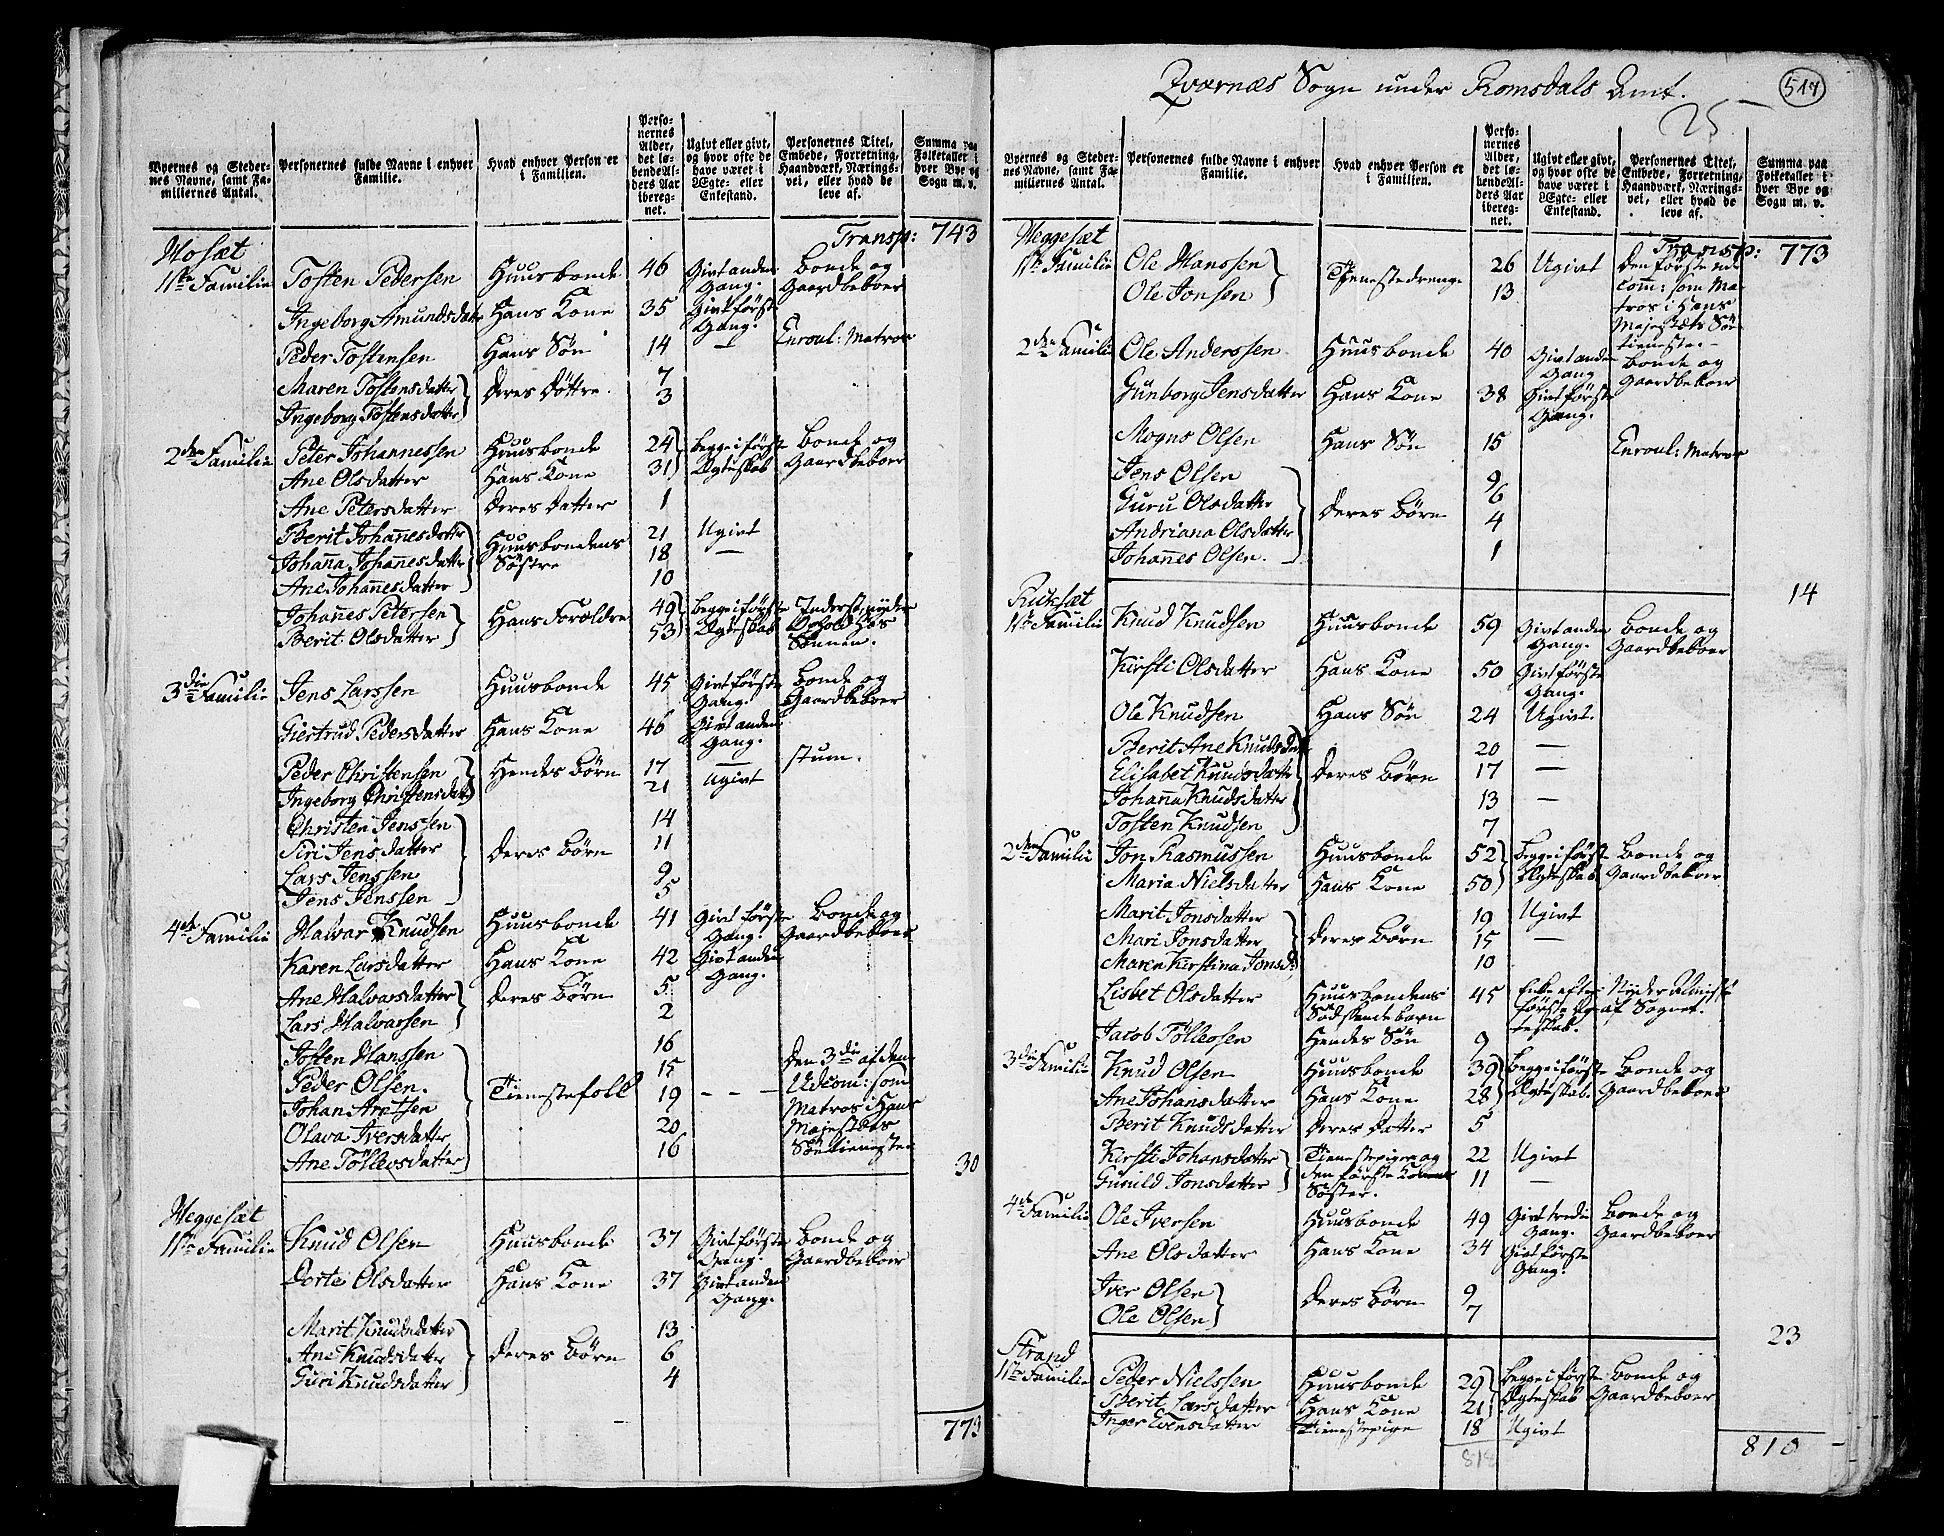 Byernes og Steder-
nes Navne, samt Fa-
miliernes Antal.
Personernes fulde Navne i enhver
Familie.
Hvad enhver Person er
i Familien.
Perso-
nernes
Alder,
det lø-
bende Al-
ders Aar
ibereg-
net.
Ugivt eller givt,
og hvor ofte de
have været i
Ægte- eller
Enkestand.
Personernes Titel,
Embede, Forretning,
Haandværk, Nærings-
vei, eller hvad de
leve af.
Summa paa
Folketallet i
hver Bye og
Sogn m. v.
Mosæt Transp: 743
1ste Familie Tosten Pedersen Huusbonde 46 Givt anden Gang. Bonde og Gaardbeboer
Ingeborg Amundsdatter Hans Kone 35 Givt første Gang.
Peder Tostensen Hans Søn 14 — Enroul: Matros
Maren Tostensdatter Deres Døttre 7
Ingeborg Tostensdatter 3
2den Familie Peter Johannessen Huusbonde 24 begge i første Bonde og
Ane Olsdatter Hans Kone 31 Ægteskab Gaardbeboer
Ane Petersdatter Deres Datter 1
Berit Johañesdatter Huusbondens 21 Ugivt
Johaña Johañesdatter Søstre 18 —
Ane Johañesdatter 10
Johañes Petersen Hans Forældre 49 begge i første Inderst, nyder
Berit Olsdatter 53 Ægteskab Ophold hos
Sønnen.
3die Familie Jens Larssen Huusbonde 45 Givt første Gang. Bonde og Gaardbeboer
Giertrud Pedersdatter Hans Kone 46 Givt anden Gang.
Peder Christensen Hendes Børn 17 — stum.
Ingeborg Christensdatter 21 Ugivt
Christen Jenssen 14
Siri Jensdatter Deres Børn 11
Lars Jenssen 9
Jens Jenssen 5
4de Familie Halvar Knudsen Huusbonde 41 Givt første Gang. Bonde og Gaardbeboer
Karen Larsdatter Hans Kone 42 Givt anden Gang.
Ane Halvarsdatter Deres Børn 5
Lars Halvarsen 2
Tosten Hanssen 16
Peder Olsen 15 Den 3die af dem
Johan Tienestefolk 19 - - - Udcom: som
Olava Iversdatter 20 Matros i Hans
Ane Tollevsdatter 16 Majestæts
Søetieneste
30
Heggesæt
1ste Familie Knud Olsen Huusbonde 37 Givt første Gang. Bonde og Gaardbeboer
Dorte Olsdatter Hans Kone 37 Givt anden Gang.
Marit Knudsdatter 13
Ane Knudsdatter Deres Børn 6
Guri Knudsdatter 4
773
Qværnæs Sogn under Romsdals Amt. 517
25
Byernes og Steder-
nes Navne, samt Fa-
miliernes Antal.
Personernes fulde Navne i enhver
Familie.
Hvad enhver Person er
i Familien.
Perso-
nernes
Alder,
det lø-
bende Al-
ders Aar
ibereg-
net.
Ugivt eller givt,
og hvor ofte de
have været i
Ægte- eller
Enkestand.
Personernes Titel,
Embede, Forretning,
Haandværk, Nærings-
vei, eller hvad de
leve af.
Summa paa
Folketallet i
hver Bye og
Sogn m. v.
Heggesæt Transp: 773
1ste Familie Ole Hanssen Tienestedrenge 26 Ugivt Den første ud-
Ole Jonsen 13 com: som Ma-
tros i Hans
Majestæts Søe
tieneste.
2den Familie Ole Anderssen Huusbonde 40 Givt anden Gang Bonde og Gaardbeboer
Gunborg Jensdatter Hans Kone 38 Givt første Gang.
Mogns Olsen Hans Søn 15 Enroul: Matros
Jens Olsen 9
Guru Olsdatter Deres Børn 6
Andriana Olsdatter 4
Johañes Olsen 1
14
1ste Familie Knud Knudsen Huusbonde 59 Givt anden Gang. Bonde og Gaardbeboer
Kirsti Olsdatter Hans Kone 50 Givt første Gang.
Ole Knudsen Hans Søn 24 Ugivt.
Berit Ane Knudsdatter 20 —
Elisabet Knudsdatter Deres Børn 17 —
Johaña Knudsdatter 13 —
Tosten Knudsen 7
2den Familie Jon Rasmussen Huusbonde 52 begge i første Bonde og
Maria Nielsdatter Hans Kone 50 Ægteskab Gaardbeboer
Marit Jonsdatter 19 Ugivt
Mari Jonsdatter Deres Børn 15 —
Maren Kirstina Jonsd. 10
Lisbet Olsdatter Huusbondens Sødskendebarn 45 Enke efter første Ægteskab. Nyder Almisse af Sognet.
Jacob Tollevsen Hendes Søn 9
3die Familie Knud Olsen Huusbonde 39 begge i første Bonde og
Ane Johansdatter Hans Kone 28 Ægteskab. Gaardbeboer
Berit Knudsdatter Deres Datter 5
Kirsti Johansdatter Tienestepiger og 22 Ugivt
Gunild Jonsdatter den første Konens 11 —
Søster.
4de Familie Ole Iversen Huusbonde 49 Givt tredie Gang. Bonde og Gaardbeboer
Ane Olsdatter Hans Kone 34 Givt første Gang.
Iver Olsen Deres Børn 9
Ole Olsen 7
23
Strand
1ste Familie Peder Nielssen Huusbonde 29 begge i første Bonde og
Berit Larsdatter Hans Kone 21 Ægteskab Gaardbeboer
Inger Evensdatter Tienestepige 18 Ugivt
818
810